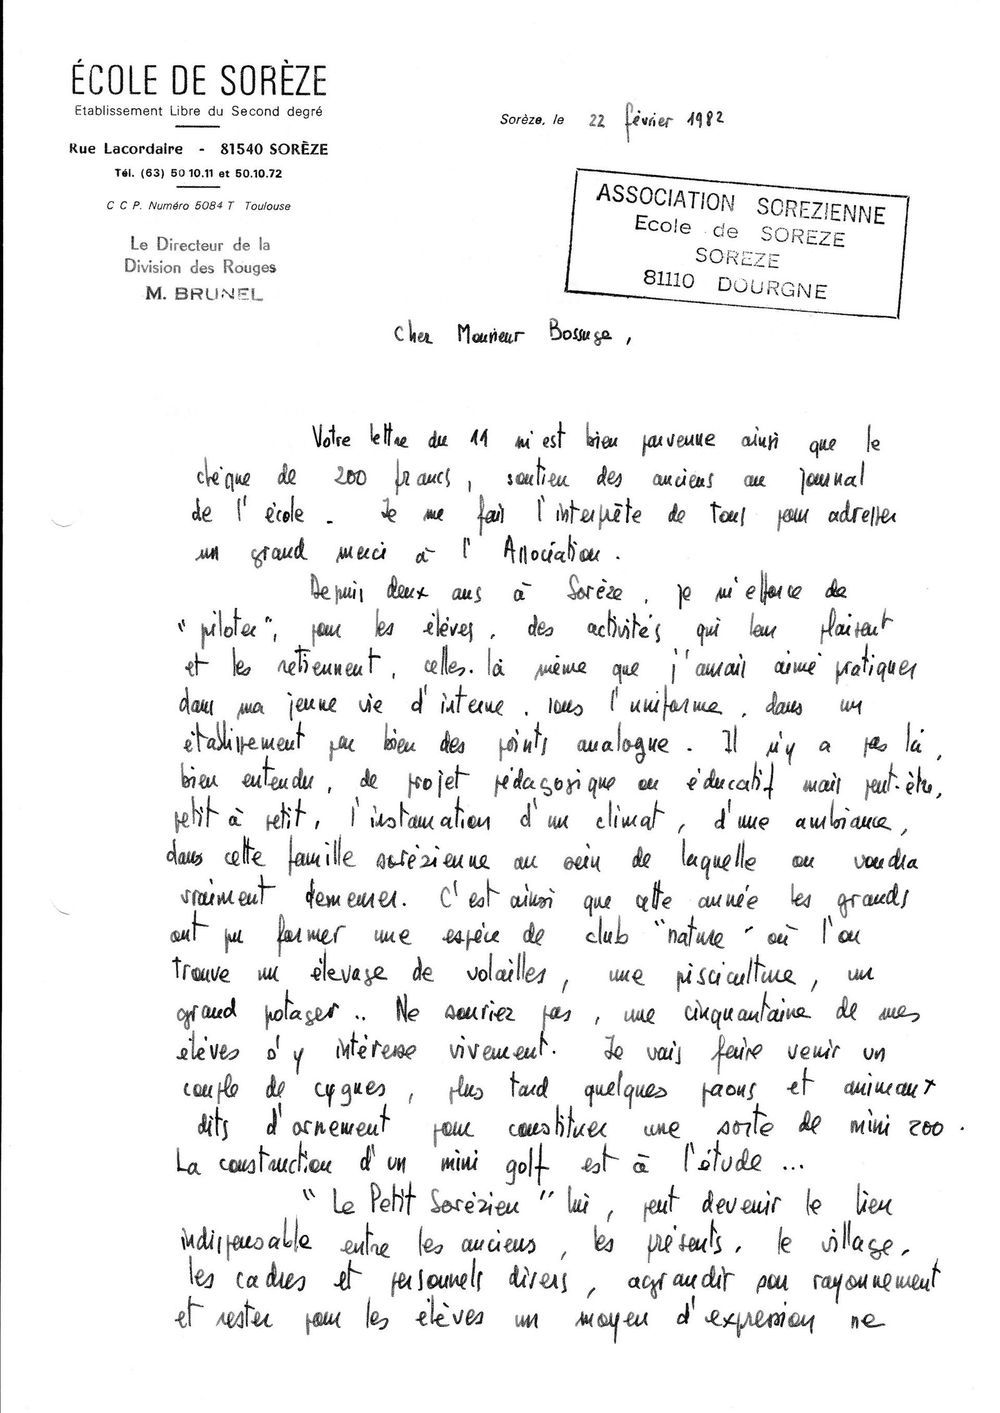 ÉCOLE DE SORÈZE
Etablissement Libre du Second degré
Rue Lacordaire - 81540 SORÈZE
Tél. (63) 50 10.11 et 50.10.72
C C P. Numéro 5084 T Toulouse
Le Directeur de la
Division des Rouges
M. BRUNEL
Sorèze, le 22 février 1982
ASSOCIATION SOREZIENNE
Ecole de SOREZE
SOREZE
81110 DOURGNE
Cher Monsieur Bossuge,
Votre lettre du 11 m'est bien parvenue ainsi que le
chèque de 200 francs, soutien des anciens au journal
de l'école. Je me fais l'interprète de tous pour adresser
un grand merci à l'Association.
Depuis deux ans à Sorèze, je m'efforce de
"piloter", pour les élèves, des activités qui leur plaisent
et les retiennent, celles-là même que j'aurais aimé pratiquer
dans ma jeune vie d'interne, sous l'uniforme, dans un
établissement par bien des points analogue. Il n'y a pas là,
bien entendu, de projet pédagogique ou éducatif mais peut-être,
petit à petit, l'instauration d'un climat, d'une ambiance,
dans cette famille sorézienne au sein de laquelle on voudra
vraiment demeurer. C'est ainsi que cette année les grands
ont pu former une espèce de club "nature" où l'on
trouve un élevage de volailles, une pisciculture, un
grand potager.. Ne souriez pas, une cinquantaine de mes
élèves s'y intéresse vivement. Je vais faire venir un
couple de cygnes, plus tard quelques paons et animaux
dits d'ornement pour constituer une sorte de mini zoo.
La construction d'un mini golf est à l'étude...
"Le Petit Sorézien" lui, peut devenir le lien
indispensable entre les anciens, les présents, le village,
les cadres et personnels divers, agrandir son rayonnement
et rester pour les élèves un moyen d'expression ne